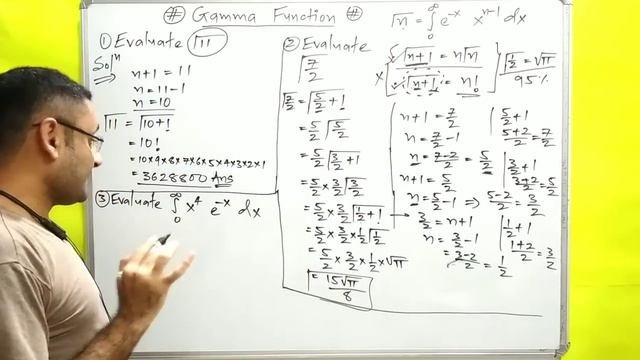 # Gamma Function #
√n = ∫₀^∞ e^-x x^n-1 dx
① Evaluate √11
Solⁿ
n+1 = 11
n = 11-1
n = 10
√11 = √10+1
= 10!
= 10×9×8×7×6×5×4×3×2×1
= 3628800 Ans
③ Evaluate ∫₀^∞ x^4 e^-x dx
② Evaluate
√7/2
√7/2 = √5/2+1
= 5/2 √5/2
= 5/2 √3/2+1
= 5/2 × 3/2 √3/2
= 5/2 × 3/2 √1/2+1
= 5/2 × 3/2 × 1/2 √1/2
= 5/2 × 3/2 × 1/2 × √π
= 15√π/8
√n+1 = n√n
√n+1 = n!
√1/2 = √π
95%
n+1 = 7/2
n = 7/2 - 1
n = 7-2/2 = 5/2
n+1 = 5/2
n = 5/2 - 1 ⇒ 5-2/2 = 3/2
3/2 = n+1
n = 3/2 - 1
= 3-2/2 = 1/2
5/2 + 1
5+2/2 = 7/2
3/2 + 1
3+2/2 = 5/2
1/2 + 1
1+2/2 = 3/2